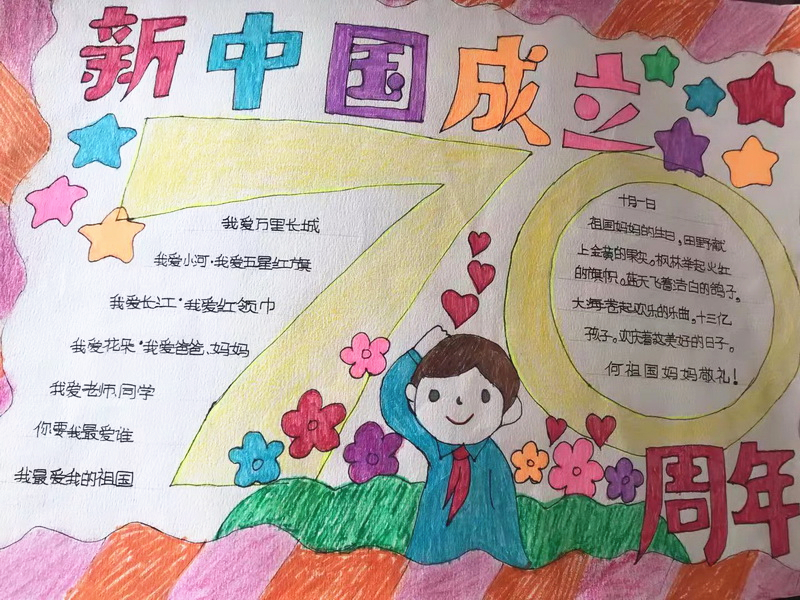 新中国成立
70
周年
我爱万里长城
我爱小河·我爱五星红旗
我爱长江·我爱红领巾
我爱花朵·我爱爸爸、妈妈
我爱老师、同学
你要我最爱谁
我最爱我的祖国
十月一日
祖国妈妈的生日,田野献
上金黄的果实。枫林举起火红
的旗帜。蓝天飞着洁白的鸽子。
大海卷起欢乐的乐曲。十三亿
孩子。欢庆着这美好的日子。
何祖国妈妈敬礼!